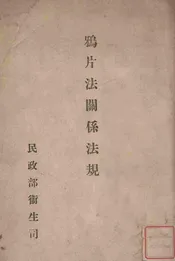 鴉片法關係法規
民政部衞生司